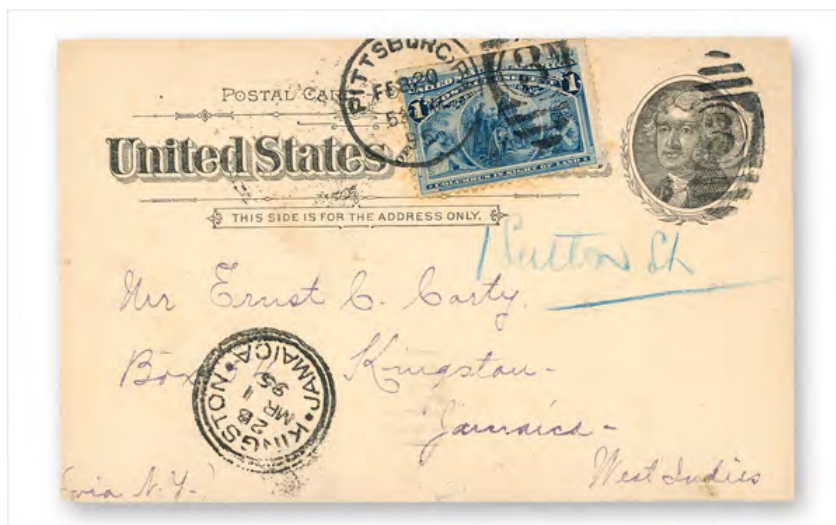 POSTAL CARD
United States
THIS SIDE IS FOR THE ADDRESS ONLY.
PITTSBURG, P
FEB 20
1 1
COLUMBUS IN SIGHT OF LAND
3
3
Sutton St
Mr Ernst C. Carty.
Box Kingston-
Jamaica-
West Indies
(via N.Y.)
KINGSTON
JAMAICA
B
MR 1
95